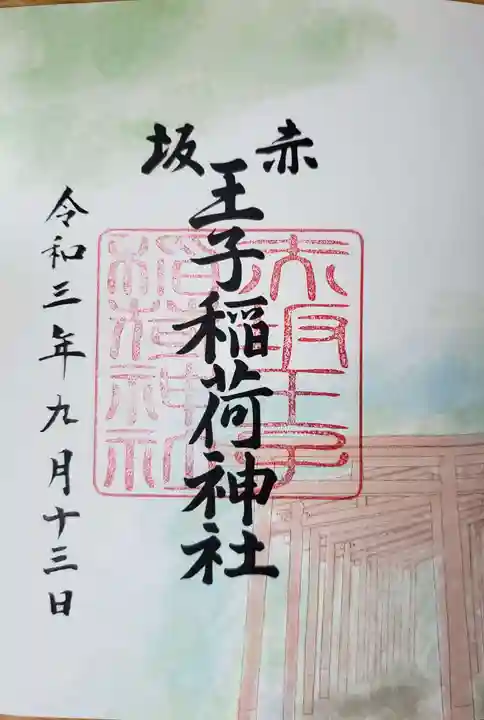 赤坂
王子稲荷神社
赤坂王子
稲荷神社
令和三年九月十三日